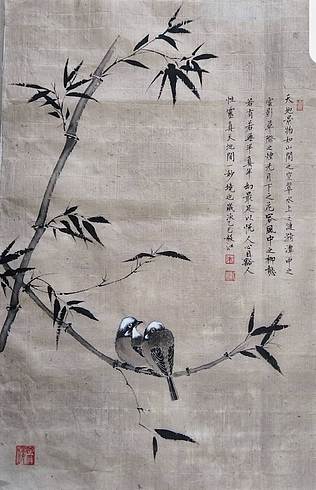 天地景物如山間之空翠水上之漣漪潭中之
雲影草際之煙光月下之花容風中之柳態
若有若無半真半幻最足以悅人心目豁人
性靈真天地間一妙境也歲次乙巳